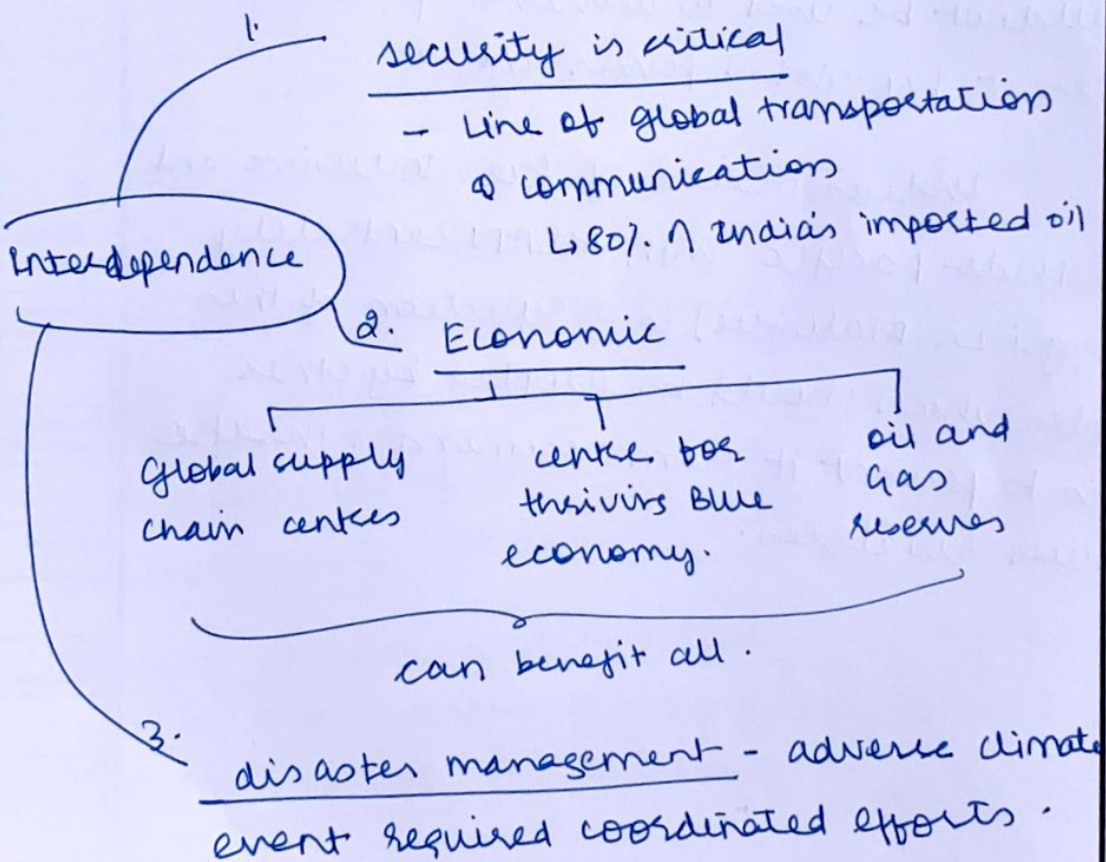 1.
security is critical
- Line of global transportation
& communication
↳ 80% ∩ India's imported oil
Interdependence
2. Economic
Global supply
chain centres
centre for
thriving Blue
economy.
oil and
Gas
reserves
can benefit all.
3.
disaster management - adverse climate
event required coordinated efforts.